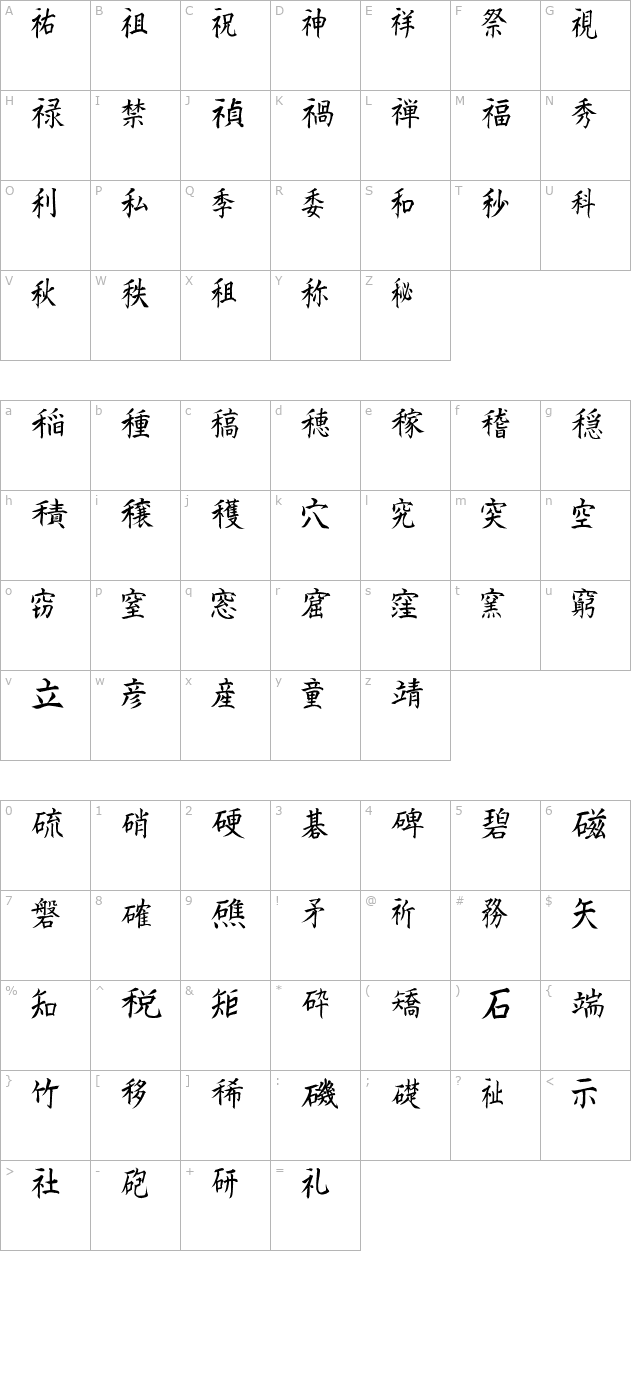 A 祐 B 祖 C 祝 D 神 E 祥 F 祭 G 視
H 禄 I 禁 J 禎 K 禍 L 禅 M 福 N 秀
O 利 P 私 Q 季 R 委 S 和 T 秒 U 科
V 秋 W 秩 X 租 Y 称 Z 秘
a 稲 b 種 c 稿 d 穂 e 稼 f 稽 g 穏
h 積 i 穣 j 穫 k 穴 l 究 m 突 n 空
o 窃 p 窒 q 窓 r 窟 s 窪 t 窯 u 窮
v 立 w 彦 x 産 y 童 z 靖
0 硫 1 硝 2 硬 3 碁 4 碑 5 碧 6 磁
7 磐 8 確 9 礁 ! 矛 @ 祈 # 務 $ 矢
% 知 ^ 税 & 矩 * 砕 ( 矯 ) 石 { 端
} 竹 [ 移 ] 稀 : 磯 ; 礎 ? 祉 < 示
> 社 - 砲 + 研 = 礼